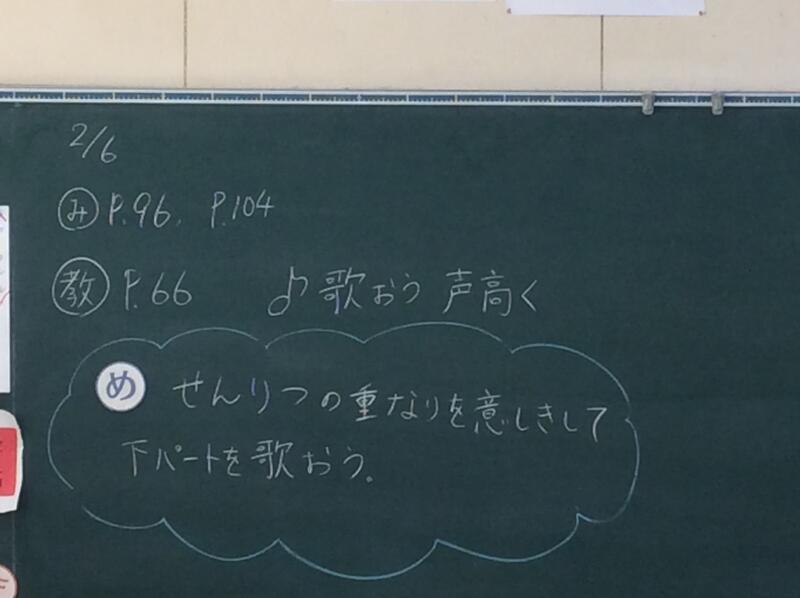 2/6
み P.96, P.104
教 P.66 ♪歌おう 声高く
め せんりつの重なりを意しきして
下パートを歌おう。